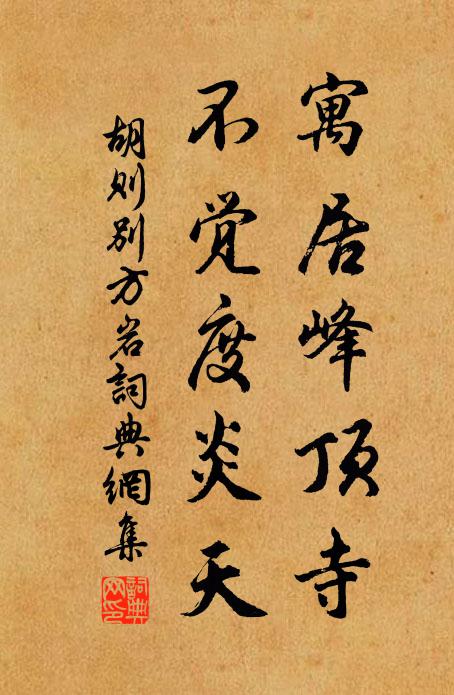 寓居峰顶寺
不觉度炎天
胡则别方岩詞典網集
詞典网印